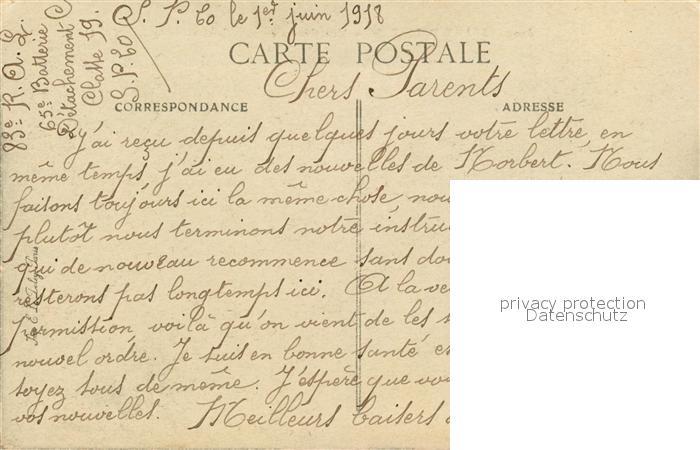 S. P. 60 le 1er juin 1918
83e R. A. L.
65e Batterie
Détachement C
Classe 19.
S. P. 60
CARTE POSTALE
Chers Parents
CORRESPONDANCE
ADRESSE
J'ai reçu depuis quelques jours votre lettre, en
même temps j'ai eu des nouvelles de Norbert. Nous
faisons toujours ici la même chose, nou
plutôt nous terminons notre instru
qui de nouveau recommence sans do
resterons pas longtemps ici. A la ve
permission voilà qu'on vient de les s
nouvel ordre. Je suis en bonne santé es
soyez tous de même. J'espère que vo
vos nouvelles. Meilleurs baisers
privacy protection
Datenschutz